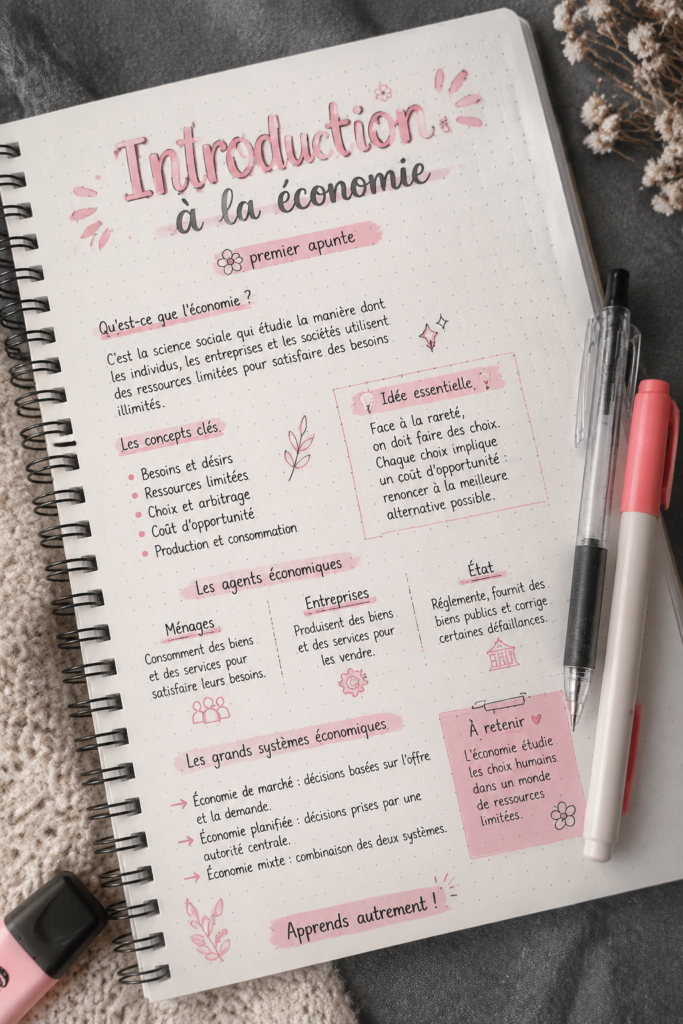 Introduction
à la économie
premier apunte
Qu'est-ce que l'économie ?
C'est la science sociale qui étudie la manière dont
les individus, les entreprises et les sociétés utilisent
des ressources limitées pour satisfaire des besoins
illimités.
Les concepts clés.
• Besoins et désirs
• Ressources limitées
• Choix et arbitrage
• Coût d'opportunité
• Production et consommation
Idée essentielle.
Face à la rareté,
on doit faire des choix.
Chaque choix implique
un coût d'opportunité :
renoncer à la meilleure
alternative possible.
Les agents économiques
Ménages
Consomment des biens
et des services pour
satisfaire leurs besoins.
Entreprises
Produisent des biens
et des services pour
les vendre.
État
Réglemente, fournit des
biens publics et corrige
certaines défaillances.
Les grands systèmes économiques
→ Économie de marché : décisions basées sur l'offre
et la demande.
→ Économie planifiée : décisions prises par une
autorité centrale.
→ Économie mixte : combinaison des deux systèmes.
À retenir
L'économie étudie
les choix humains
dans un monde
de ressources
limitées.
Apprends autrement !